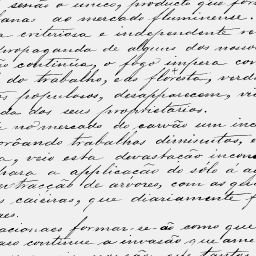 senão o unico, producto que for
ianas ao mercado fluminense.
a criteriosa e independente re
propaganda de alguns dos nosso
ão continua, o fogo impera con
do trabalho, das florestas, verda
os populosos, desapparecem, vi
da dos seus proprietarios.
no mercado do carvão um inc
orôando trabalhos diminutos, e
a, veio esta devastação incons
para a applicação do sólo à ag
extracção de arvores, com as qua
caieiras, que diariamente f
aes.
acionaes formar-se-ão como que
aio continue a invasão que ame